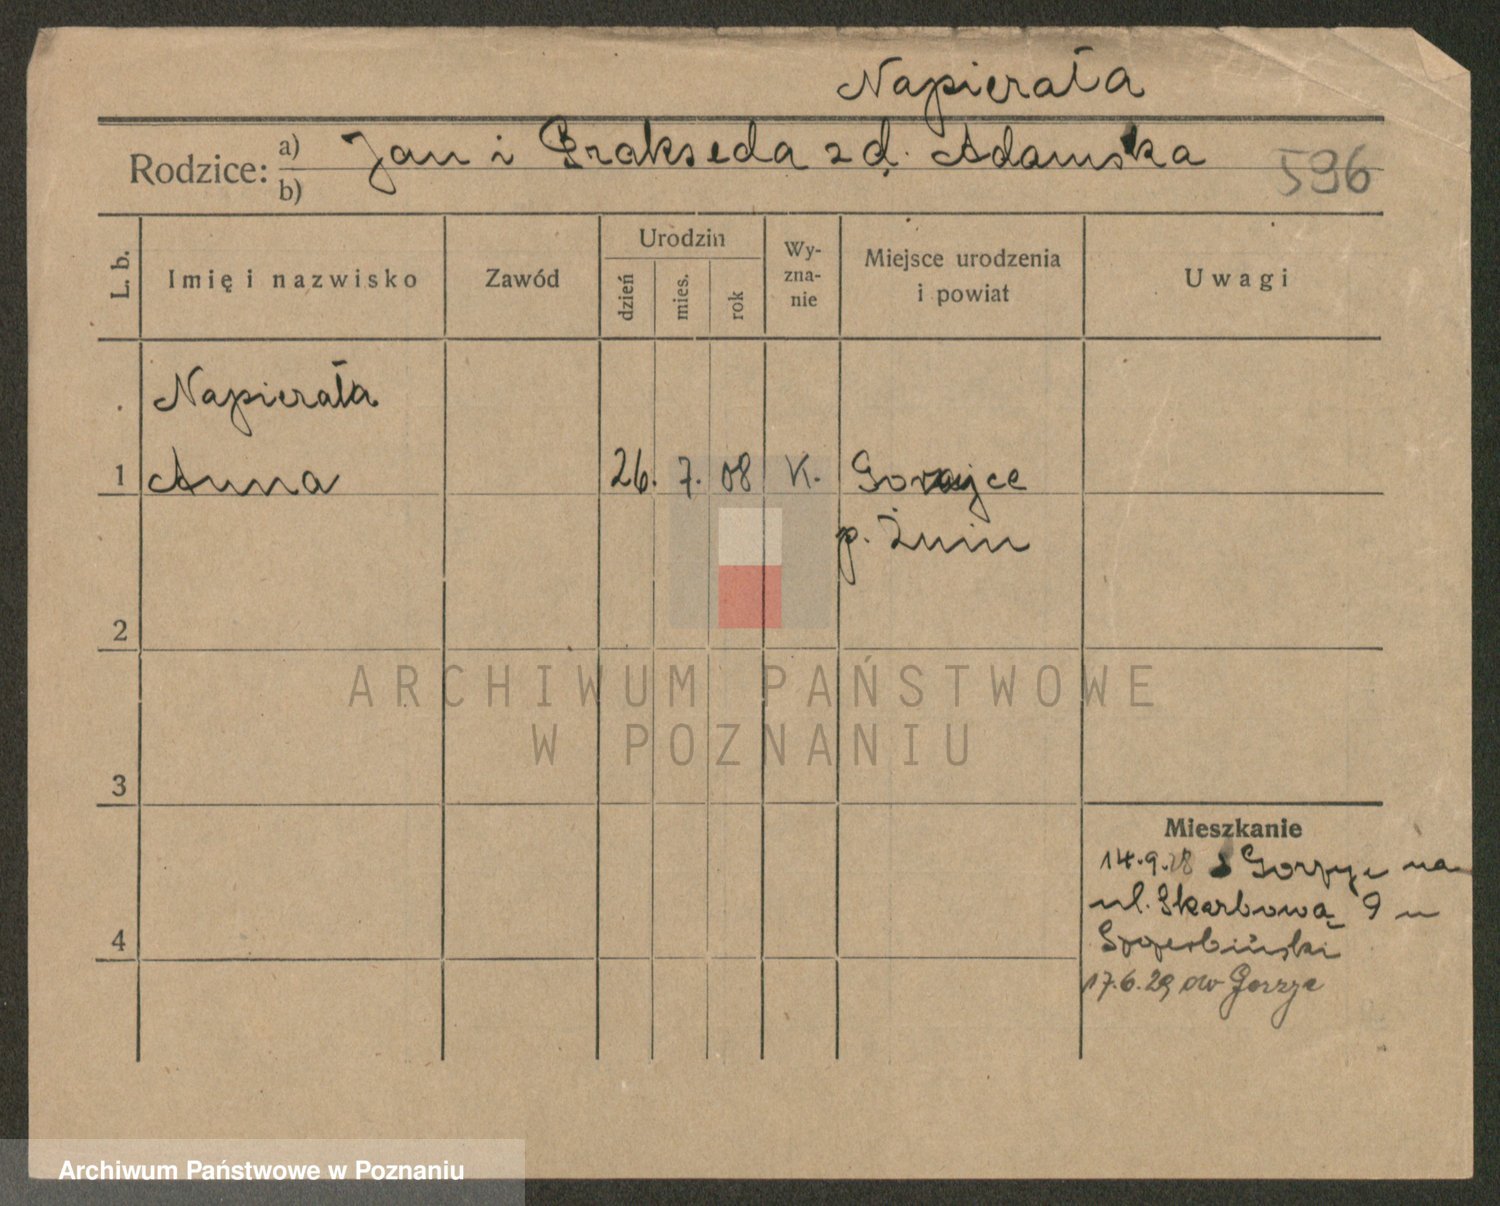 Napierała
Rodzice: a) Jan i Prakseda zd. Adamska
b)
596
L. b. Imię i nazwisko Zawód Urodzin dzień mies. rok Wy-zna-nie Miejsce urodzenia i powiat Uwagi
Napierała
1 Anna 26. 7. 08 K.
p. Żnin
2
ARCHIWUM PAŃSTWOWE
W POZNANIU
3
Mieszkanie
14.9.28 z Gorzyc na
ul. Skarbową 9 u
4
17.6.29 do Gorzyc
Archiwum Państwowe w Poznaniu